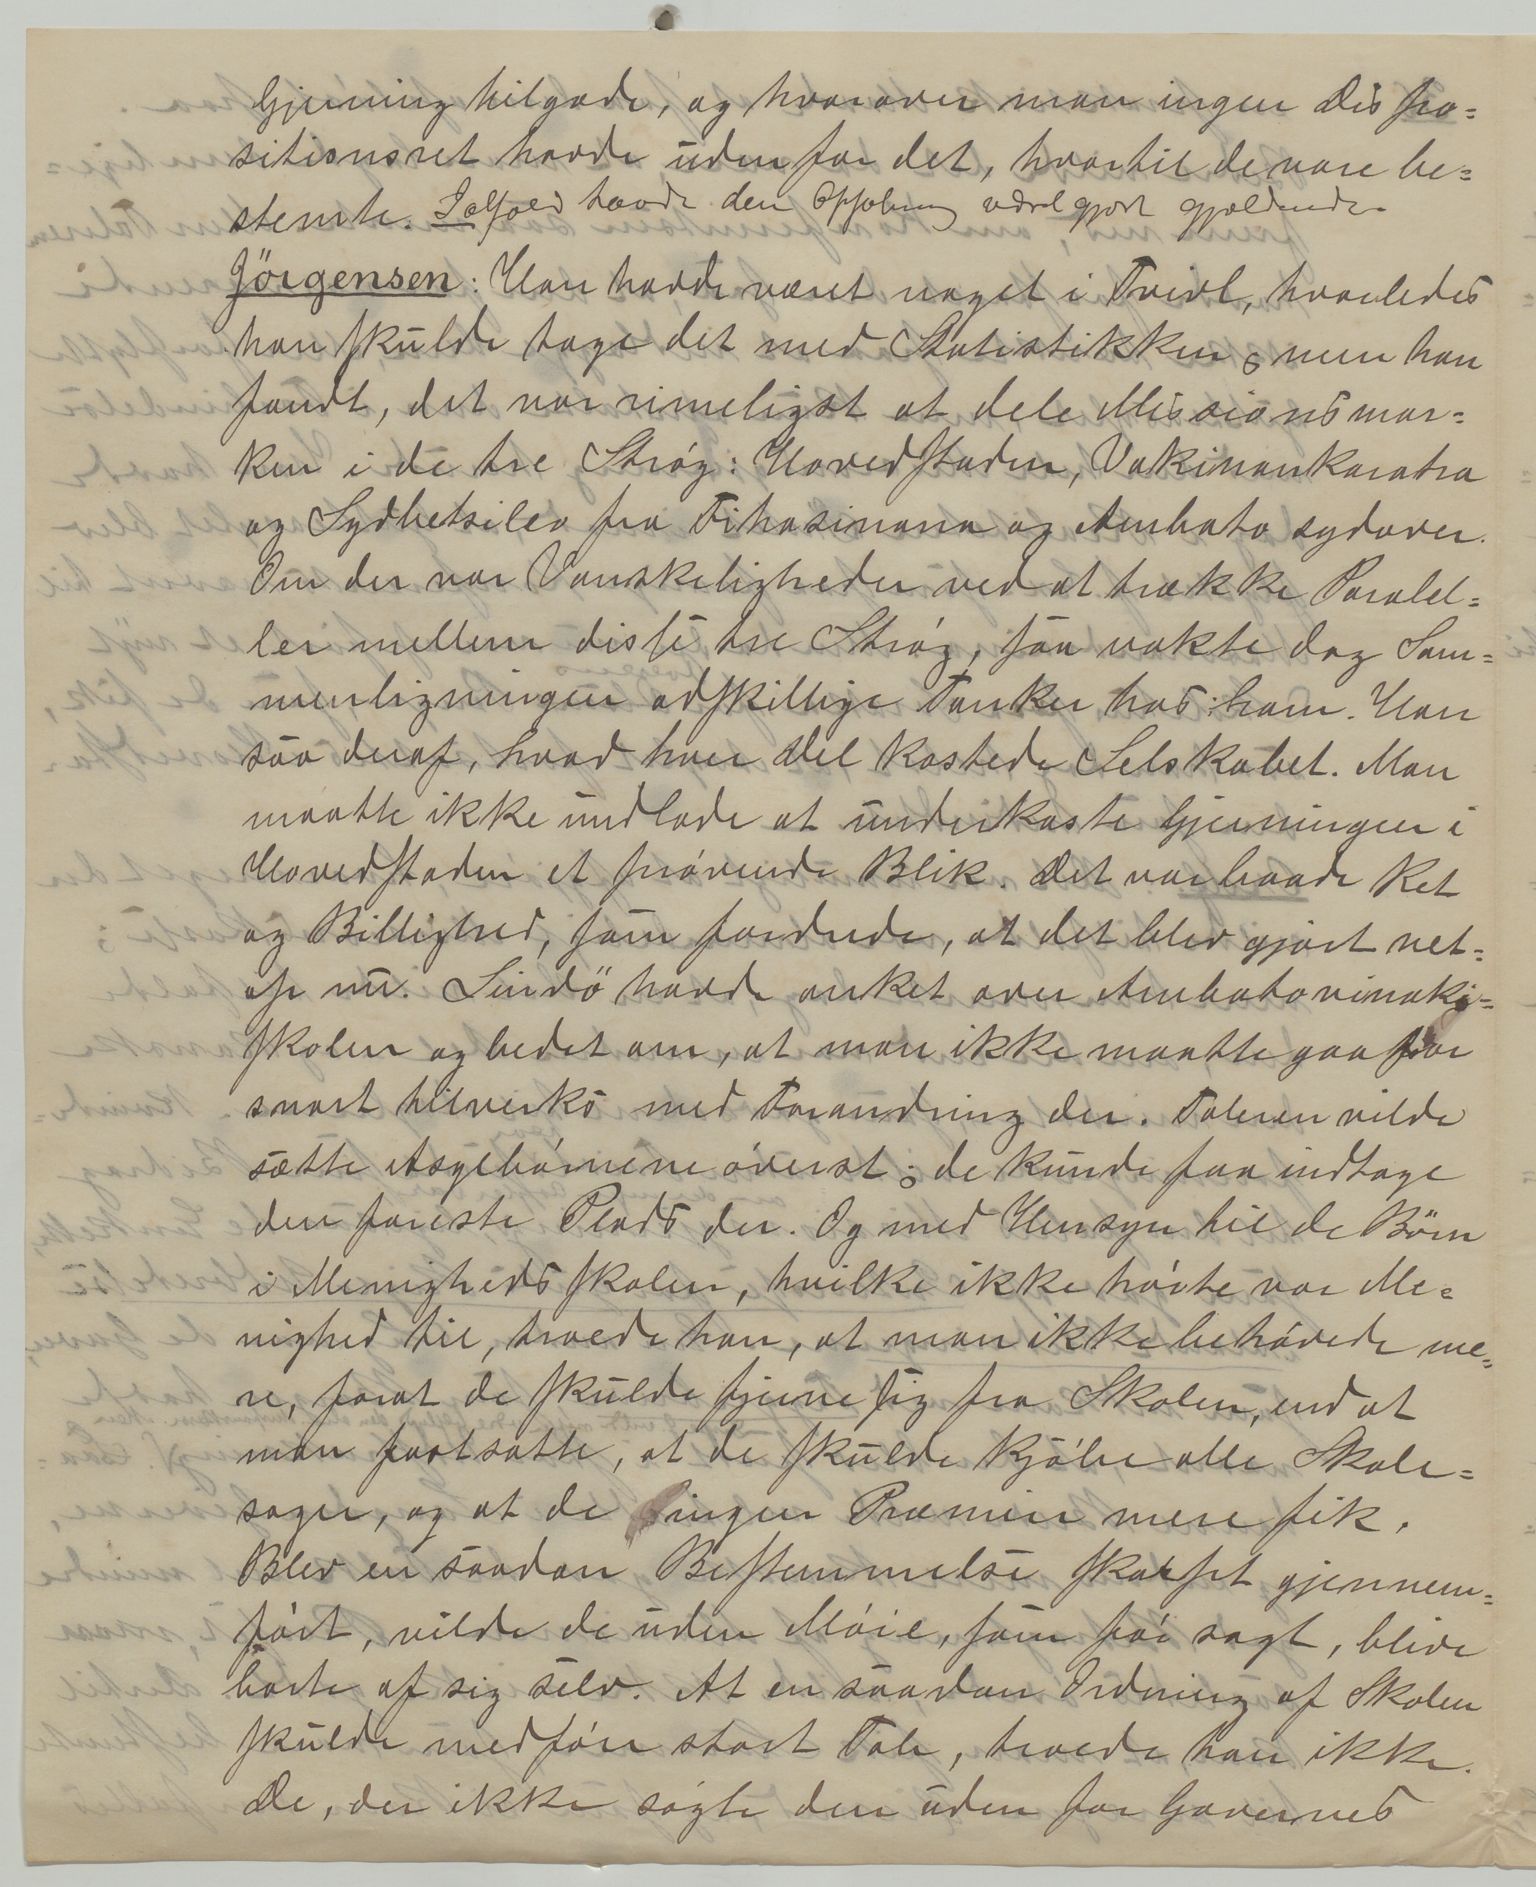 Gjerning tilgode, og hvorover man ingen Dispo=
sitionsret havde uden for det, hvortil de vare be=
stemte. Ialfald havde den Opfatning været gjort gjældende.
Jörgensen: Han havde været noget i Tvivl, hvorledes
han skulde tage det med Statistikken; men han
fandt, det var rimeligst at dele Missionsmar=
ken i de tre Strøg: Hovedstaden, Vakinankaratra
og Sydbetsileo fra Fihasinana og Ambato sydover.
Om der var Vanskeligheder ved at trække Paralel=
ler mellem disse tre Strøg, saa vakte dog Sam=
menligningen adskillige Tanker hos ham. Han
saa deraf, hvad hver Del kostede Selskabet. Man
maatte ikke undlade at underkaste Gjerningen i
Hovedstaden et prøvende Blik. Det var baade Ret
og Billighed, som fordrede, at det blev gjort net=
op nu. Lindö havde anket over Ambatovinaki=
skolen og bedet om, at man ikke maatte gaa for
snart tilverks med Forandring der. Taleren vilde
sætte Asylbørnene øverst; de kunde faa indtage
den første Plads der. Og med Hensyn til de Börn
i Menighedsskolen, hvilke ikke hørte vor Me=
nighed til, troede han, at man ikke behøvede me=
re, forat de skulde fjerne sig fra Skolen, end at
man fastsatte, at de skulde kjøbe alle Skole=
sager, og at de ingen Præmier mere fik.
Blev en saadan Bestemmelse skarpt gjennem=
ført, vilde de uden Møie, som før sagt, blive
borte af sig selv. At en saadan Ordning af Skolen
skulde medføre stort Tab, troede han ikke.
De, der ikke søgte den uden for Gavernes